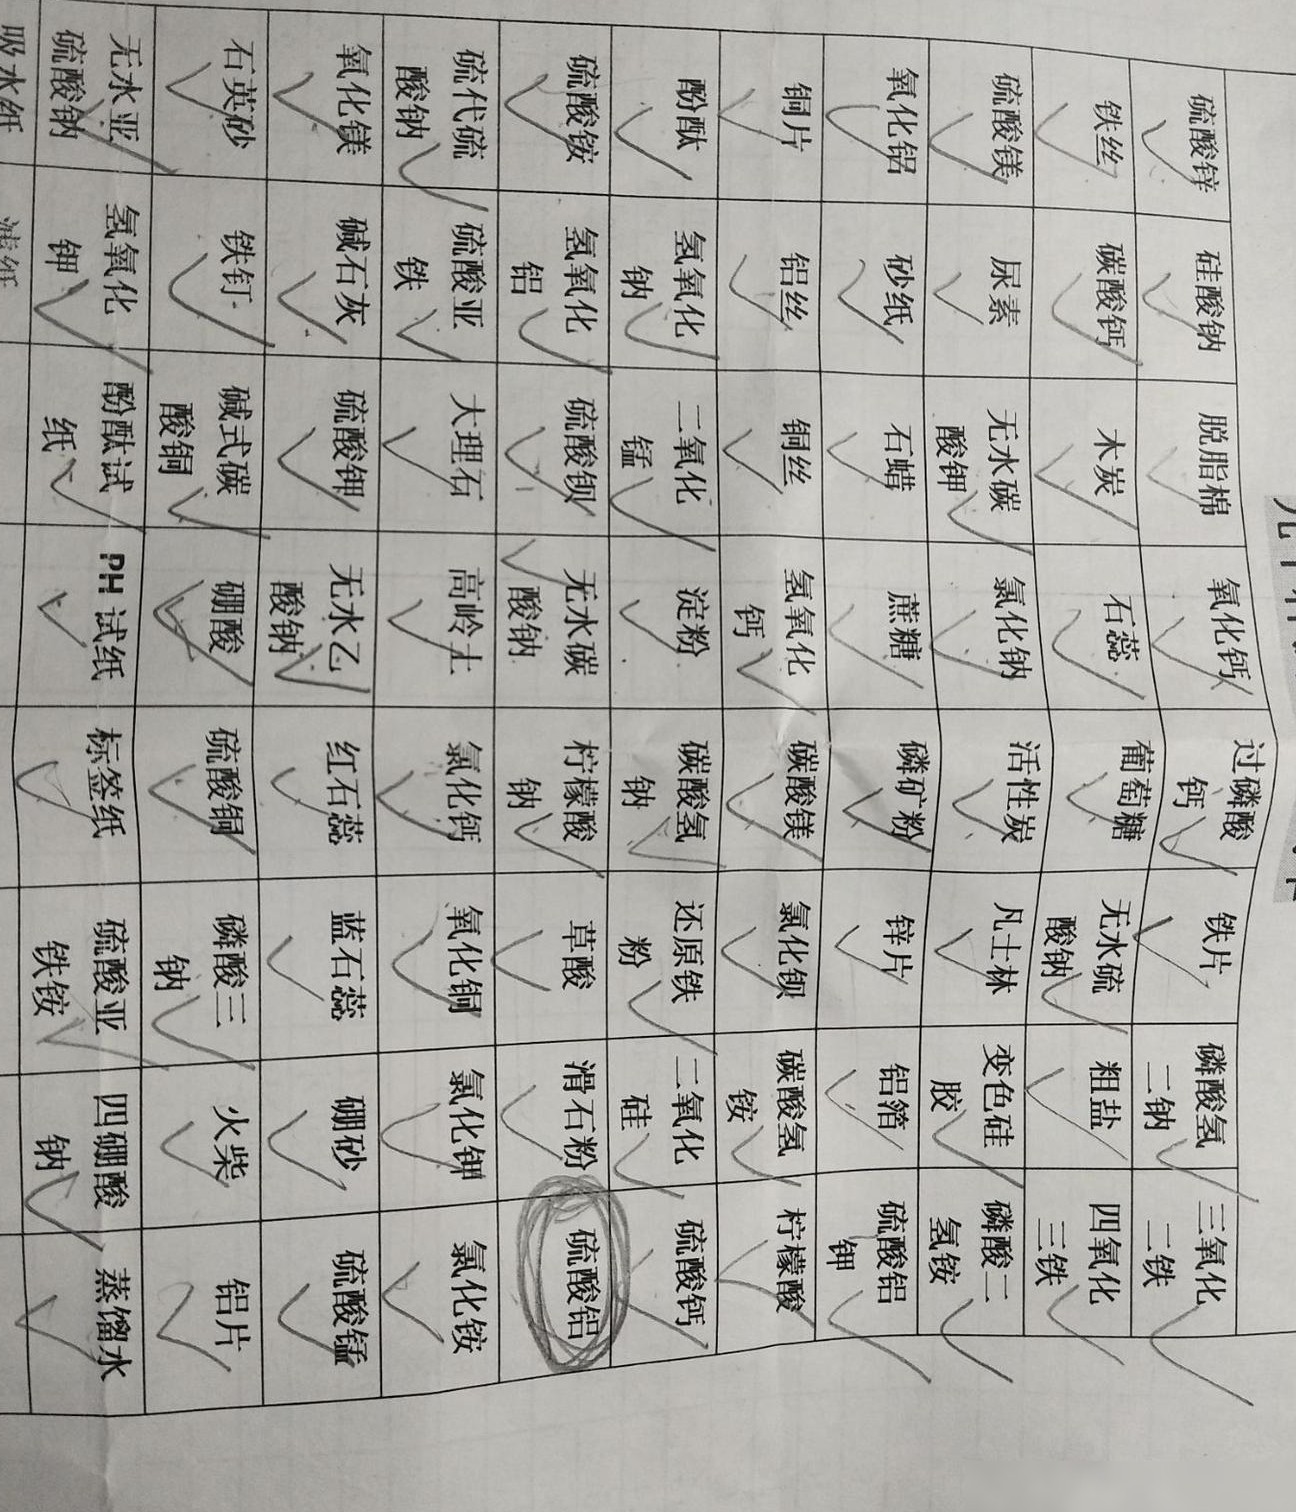 硫酸锌 硅酸钠 脱脂棉 氧化钙 过磷酸钙 铁片 磷酸氢二钠 三氧化二铁
铁丝 碳酸钙 木炭 石蕊 葡萄糖 无水硫酸钠 粗盐 四氧化三铁
硫酸镁 尿素 无水碳酸钾 氯化钠 活性炭 凡士林 变色硅胶 磷酸二氢铵
氧化铝 砂纸 石蜡 蔗糖 磷矿粉 锌片 铝箔 硫酸铝钾
铜片 铝丝 铜丝 氢氧化钙 碳酸镁 氯化钡 碳酸氢铵 柠檬酸
酚酞 氢氧化钠 二氧化锰 淀粉 碳酸氢钠 还原铁粉 二氧化硅 硫酸钙
硫酸铵 氢氧化铝 硫酸钡 无水碳酸钠 柠檬酸钠 草酸 滑石粉 硫酸铝
硫代硫酸钠 硫酸亚铁 大理石 高岭土 氯化钙 氧化铜 氯化钾 氯化铵
氧化镁 碱石灰 硫酸钾 无水乙酸钠 红石蕊 蓝石蕊 硼砂 硫酸锰
石英砂 铁钉 碱式碳酸铜 硼酸 硫酸铜 磷酸三钠 火柴 铝片
无水亚硫酸钠 氢氧化钾 酚酞试纸 PH试纸 标签纸 硫酸亚铁铵 四硼酸钠 蒸馏水
吸水纸 滤纸